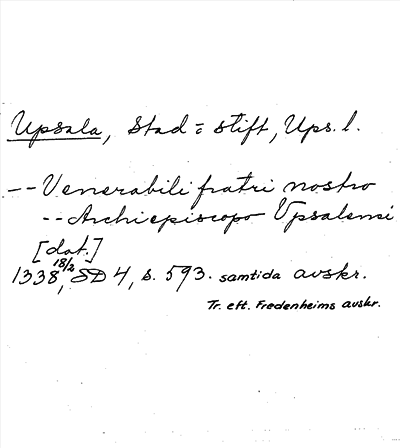 Upsala, Stad = stift, Ups. l.
-- Venerabili fratri nostro
-- Archiepiscopo Upsalensi
[dat.]
1338 18/2, SD 4, s. 593. samtida avskr.
Tr. eft. Fredenheims avskr.